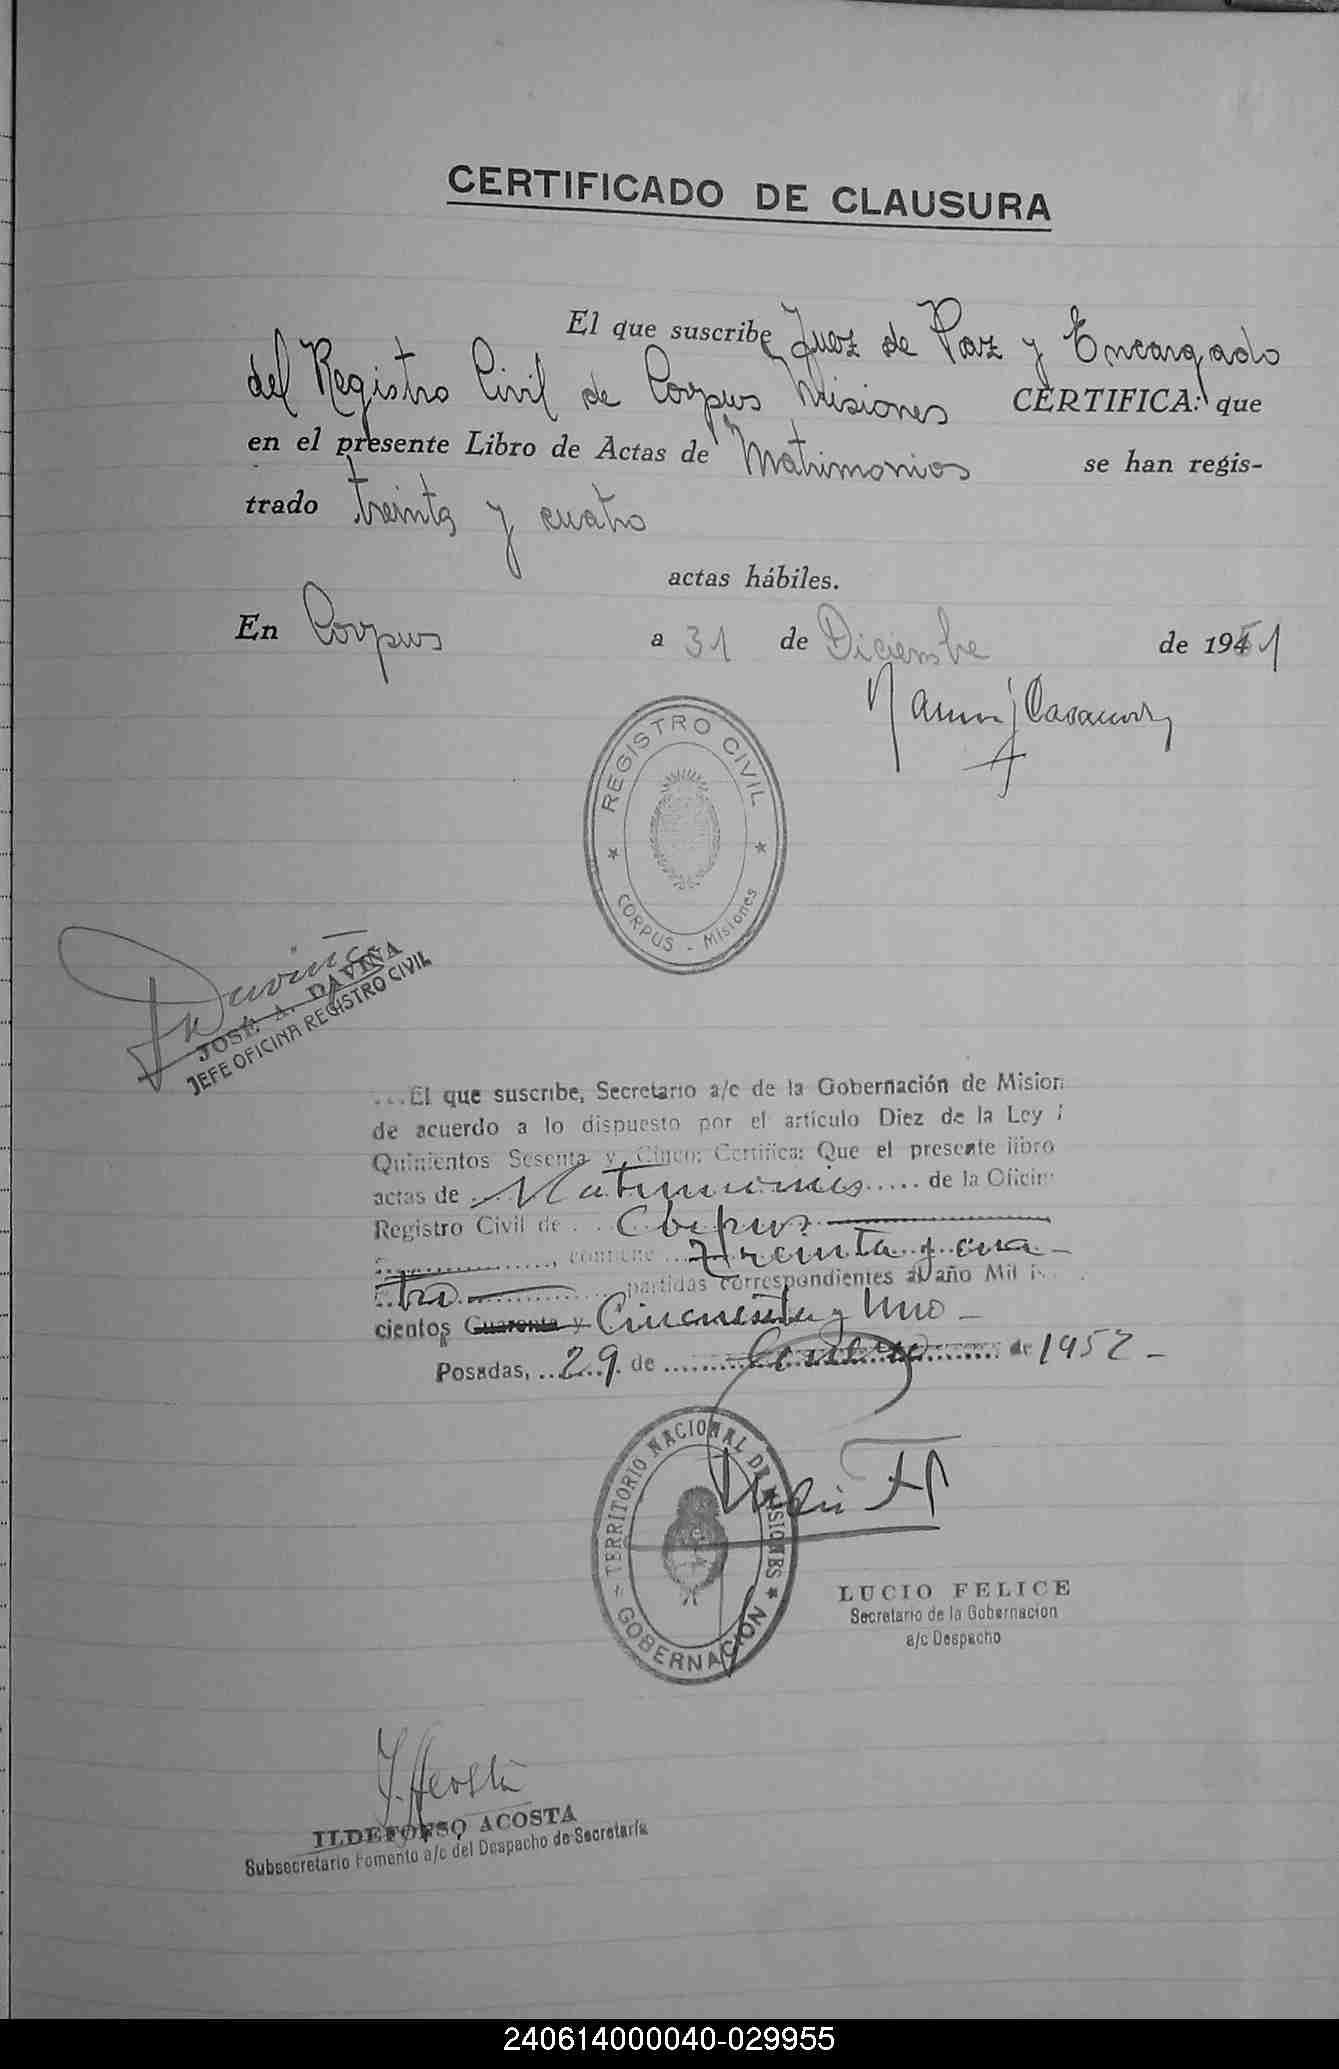 CERTIFICADO DE CLAUSURA
El que suscribe Juez de Paz y Encargado
del Registro Civil de Corpus Misiones CERTIFICA: que
en el presente Libro de Actas de Matrimonios se han regis-
trado treinta y cuatro
actas hábiles.
En Corpus a 31 de Diciembre de 1951
REGISTRO CIVIL
CORPUS - Misiones
Daviña
JOSÉ A. DAVIÑA
JEFE OFICINA REGISTRO CIVIL
...El que suscribe, Secretario a/c de la Gobernación de Mision
de acuerdo a lo dispuesto por el artículo Diez de la Ley
Quinientos Sesenta y Cinco: Certifica: Que el presente libro
actas de Matrimonios..... de la Oficin
Registro Civil de Corpus
contiene Treinta y cua-
tro partidas correspondientes al año Mil
cientos Cuarenta y Cincuenta y Uno -
Posadas, 29 de Enero de 1952 -
TERRITORIO NACIONAL DE MISIONES
GOBERNACIÓN
LUCIO FELICE
Secretario de la Gobernacion
a/c Despacho
I. Acosta
ILDEFONSO ACOSTA
Subsecretario Fomento a/c del Despacho de Secretaría
240614000040-029955